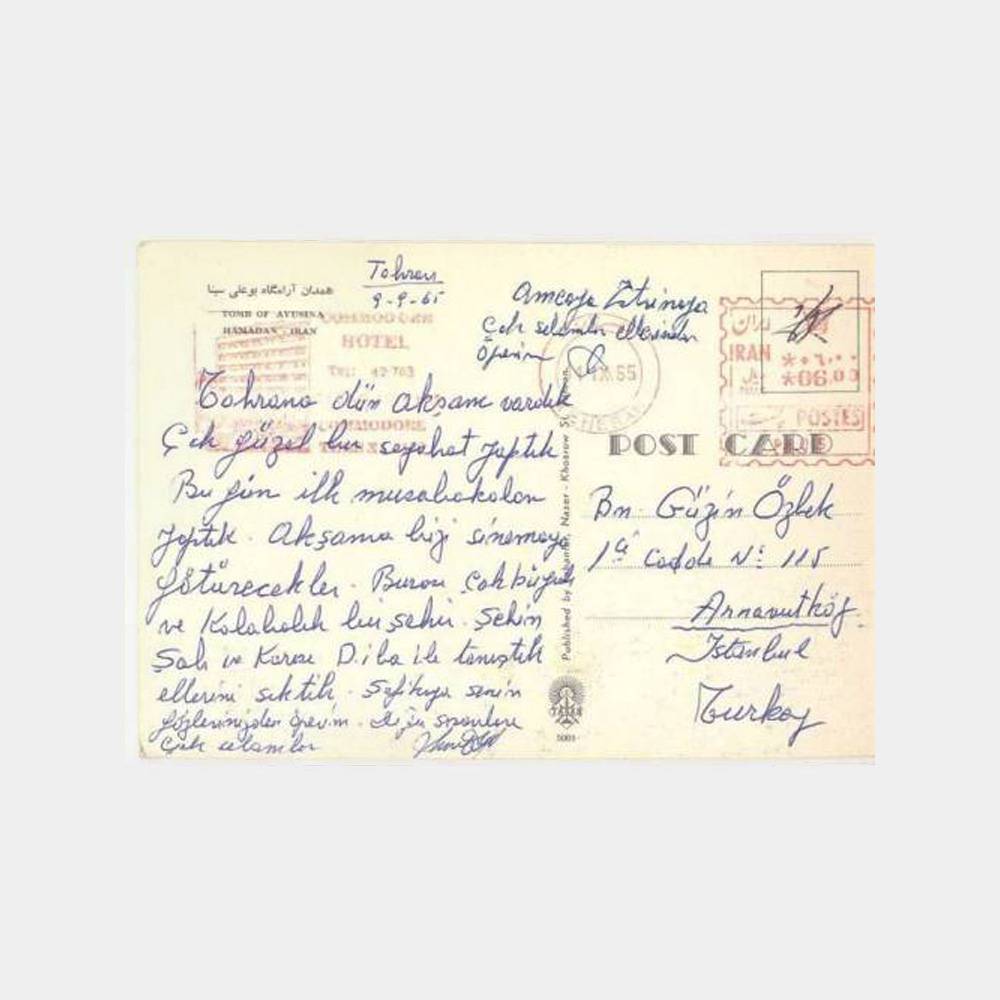 همدان آرامگاه بوعلی سینا
TOMB OF AYUSINA
HAMADAN - IRAN
Tahran
9-9-65
HOTEL
TEL: 42703
COMMODORE
Tahrana dün akşam vardık
Çok güzel bir seyahat yaptık
Bu gün ilk musabakaları
yaptık. Akşama bizi sinemaya
götürecekler. Burası çok büyük
ve kalabalık bir şehir. Şehin
Şah ve Karısı Diba ile tanıştık
ellerini sıktık. Safikaya senin
gözlerinizden öperim. Diğer soranlara
Çok selamlar
Amcaya
Çok selamlar ellerinden
Öperim
IX 65
Published by Nazer - Khosrow
5001
ایران
IRAN
ریال
*06.00
پست POSTES
POST CARD
Bn. Güzin Özbek
1ci Cadde No: 115
Arnavutköy
İstanbul
Turkey